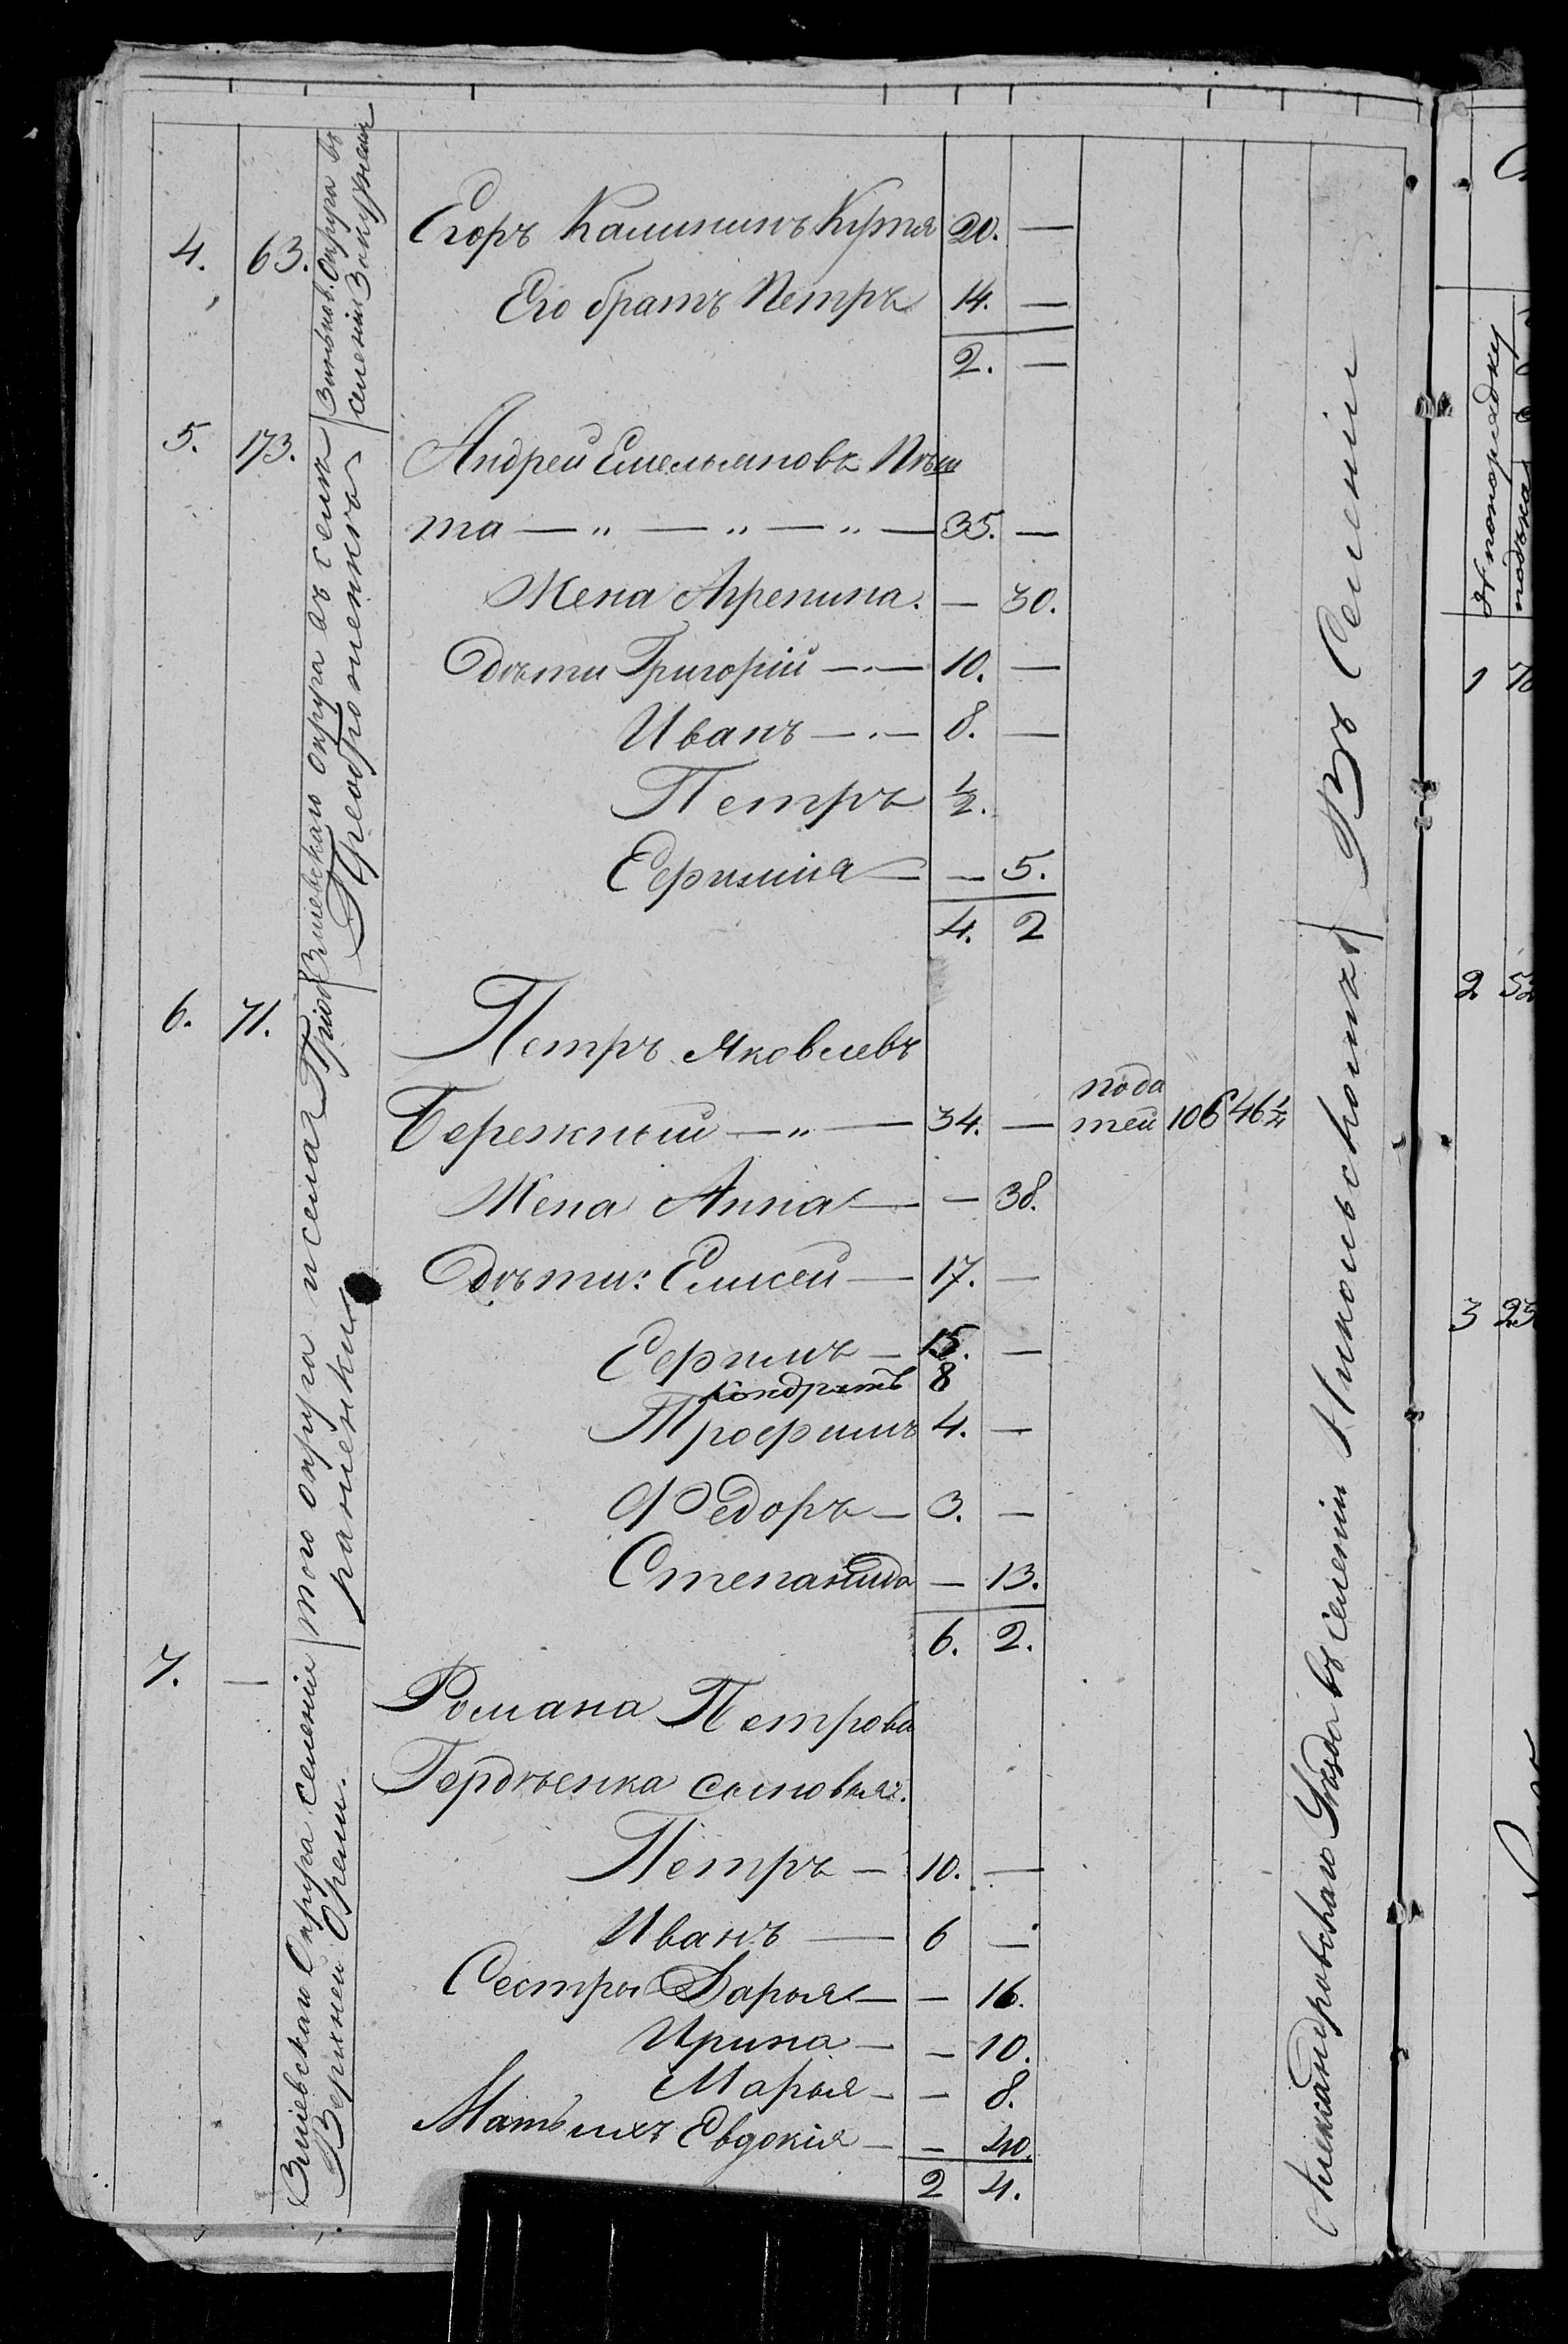 4. 63. Егоръ Калининъ Куття 20. —
Его братъ Петръ 14. —
2. —
5. 173. Андрей Емельяновъ Пѣш
та — „ — „ — „ — 35. —
Жена Агрепина. — 30.
Дѣти Григорій — 10. —
Иванъ — 8. —
Петръ ½.
Ефимія — — 5.
4. 2
6. 71. Петръ Яковлевъ
Бережный — „ — 34. — пода
тей 106 46½
Жена Анна — — 38.
Дѣти: Елисей — 17. —
Ефимъ — 15. —
Кондратъ 8
Трофимъ 4. —
Федоръ — 3. —
Степанида — 13.
6. 2.
7. — Романа Петрова
Гордѣенка сыновья:
Петръ — 10. —
Иванъ — 6 —
Сестры Дарья — — 16.
Ирина — — 10.
Марья — — 8.
Мать ихъ Евдокія — — 40.
2 4.
Зиньков. округа въ
селеніи
Зміевскаго округа въ селѣ
того округа и села
Зміевскаго Округа селенія
Верхней Орели.
Александровскаго Уѣзда въ селеніи Никольскомъ
Въ Селеніи
№ по порядку
1 70
2 52
3 23